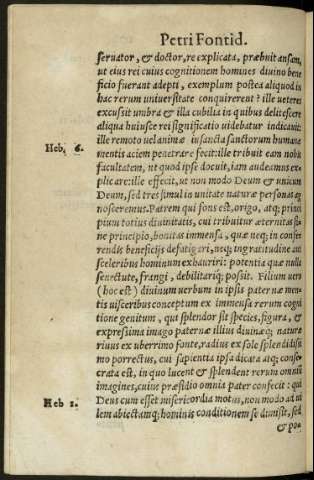 Petri Fontid.
seruator, & doctor, re explicata, præbuit ansam,
ut eius rei cuius cognitionem homines diuino bene
ficio fuerant adepti, exemplum postea aliquod in
hac rerum uniuersitate conquirerent? ille ueteres
excussit umbra & illa cubilia in quibus delitescere
aliqua huiusce rei significatio uidebatur indicauit:
Heb, 6. ille remoto uel animæ in sancta sanctorum humanæ
mentis aciem penetrare fecit: ille tribuit eam nobis
facultatem, ut quod ipse docuit, iam audeamus ex-
plicare: ille effecit, ut non modo Deum & unicum
Deum, sed tres simul in unitate naturæ personas ag
nosceremus. Patrem qui fons est, origo, atq; princi
pium totius diuinitatis, cui tribuitur æternitas si-
ne principio, bonitas immensa, quæ neq; in confe-
rendis beneficijs defatigari, neq; ingratitudine aut
sceleribus hominum exhauriri: potentia quæ nulla
senectute, frangi, debilitariq; possit. Filium uerò
(hoc est) diuinum uerbum in ipsis paternæ men
tis uisceribus conceptum ex immensa rerum cogni
tione genitum, qui splendor sit species, figura, &
expressima imago paternæ illius diuinæq; naturæ
riuus ex uberrimo fonte, radius ex sole splendidissi
mo porrectus, cui sapientia ipsa dicata atq; conse-
crata est, in quo lucent & splendent rerum omniũ
imagines, cuius præsidio omnia pater confecit: qui
Heb 1. Deus cum esset misericordia motus, non modo ad ui
lem abiectamq; hominis conditionem se dimisit, sed
& pœ